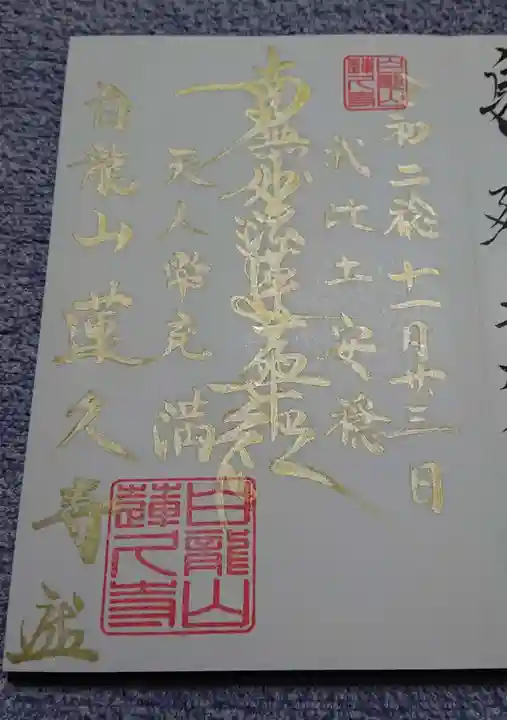 令初二稔十一月廿三日
我此土安穏
南無妙法蓮華経
天人常充満
白龍山蓮久寺
白龍山
蓮久寺
白龍山
蓮久寺